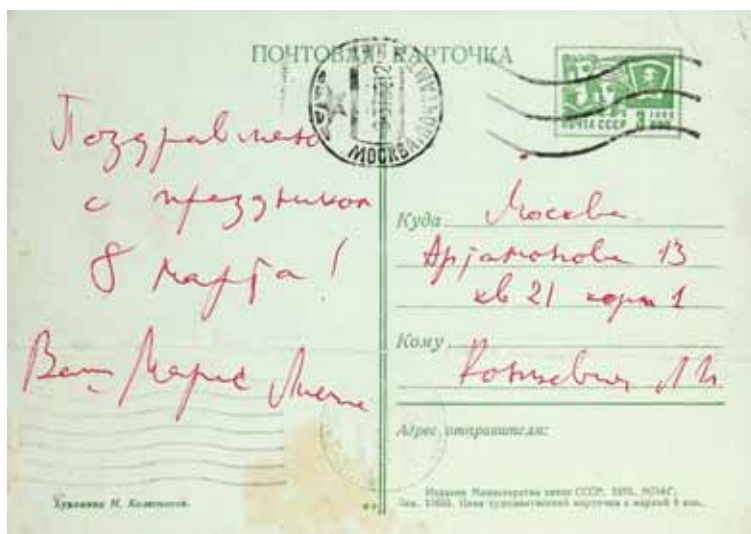 ПОЧТОВАЯ КАРТОЧКА
МОСКВА
ПОЧТА СССР 3 КОП
Поздравляю
с праздником
8 марта!
Ваш Марис Лиепа
Куда Москва
Артамонова 13
кв 21 корп 1
Кому
Л И
Адрес отправителя:
Художник И.
Издание Министерства связи СССР.
Цена художественной карточки с маркой 4 коп.